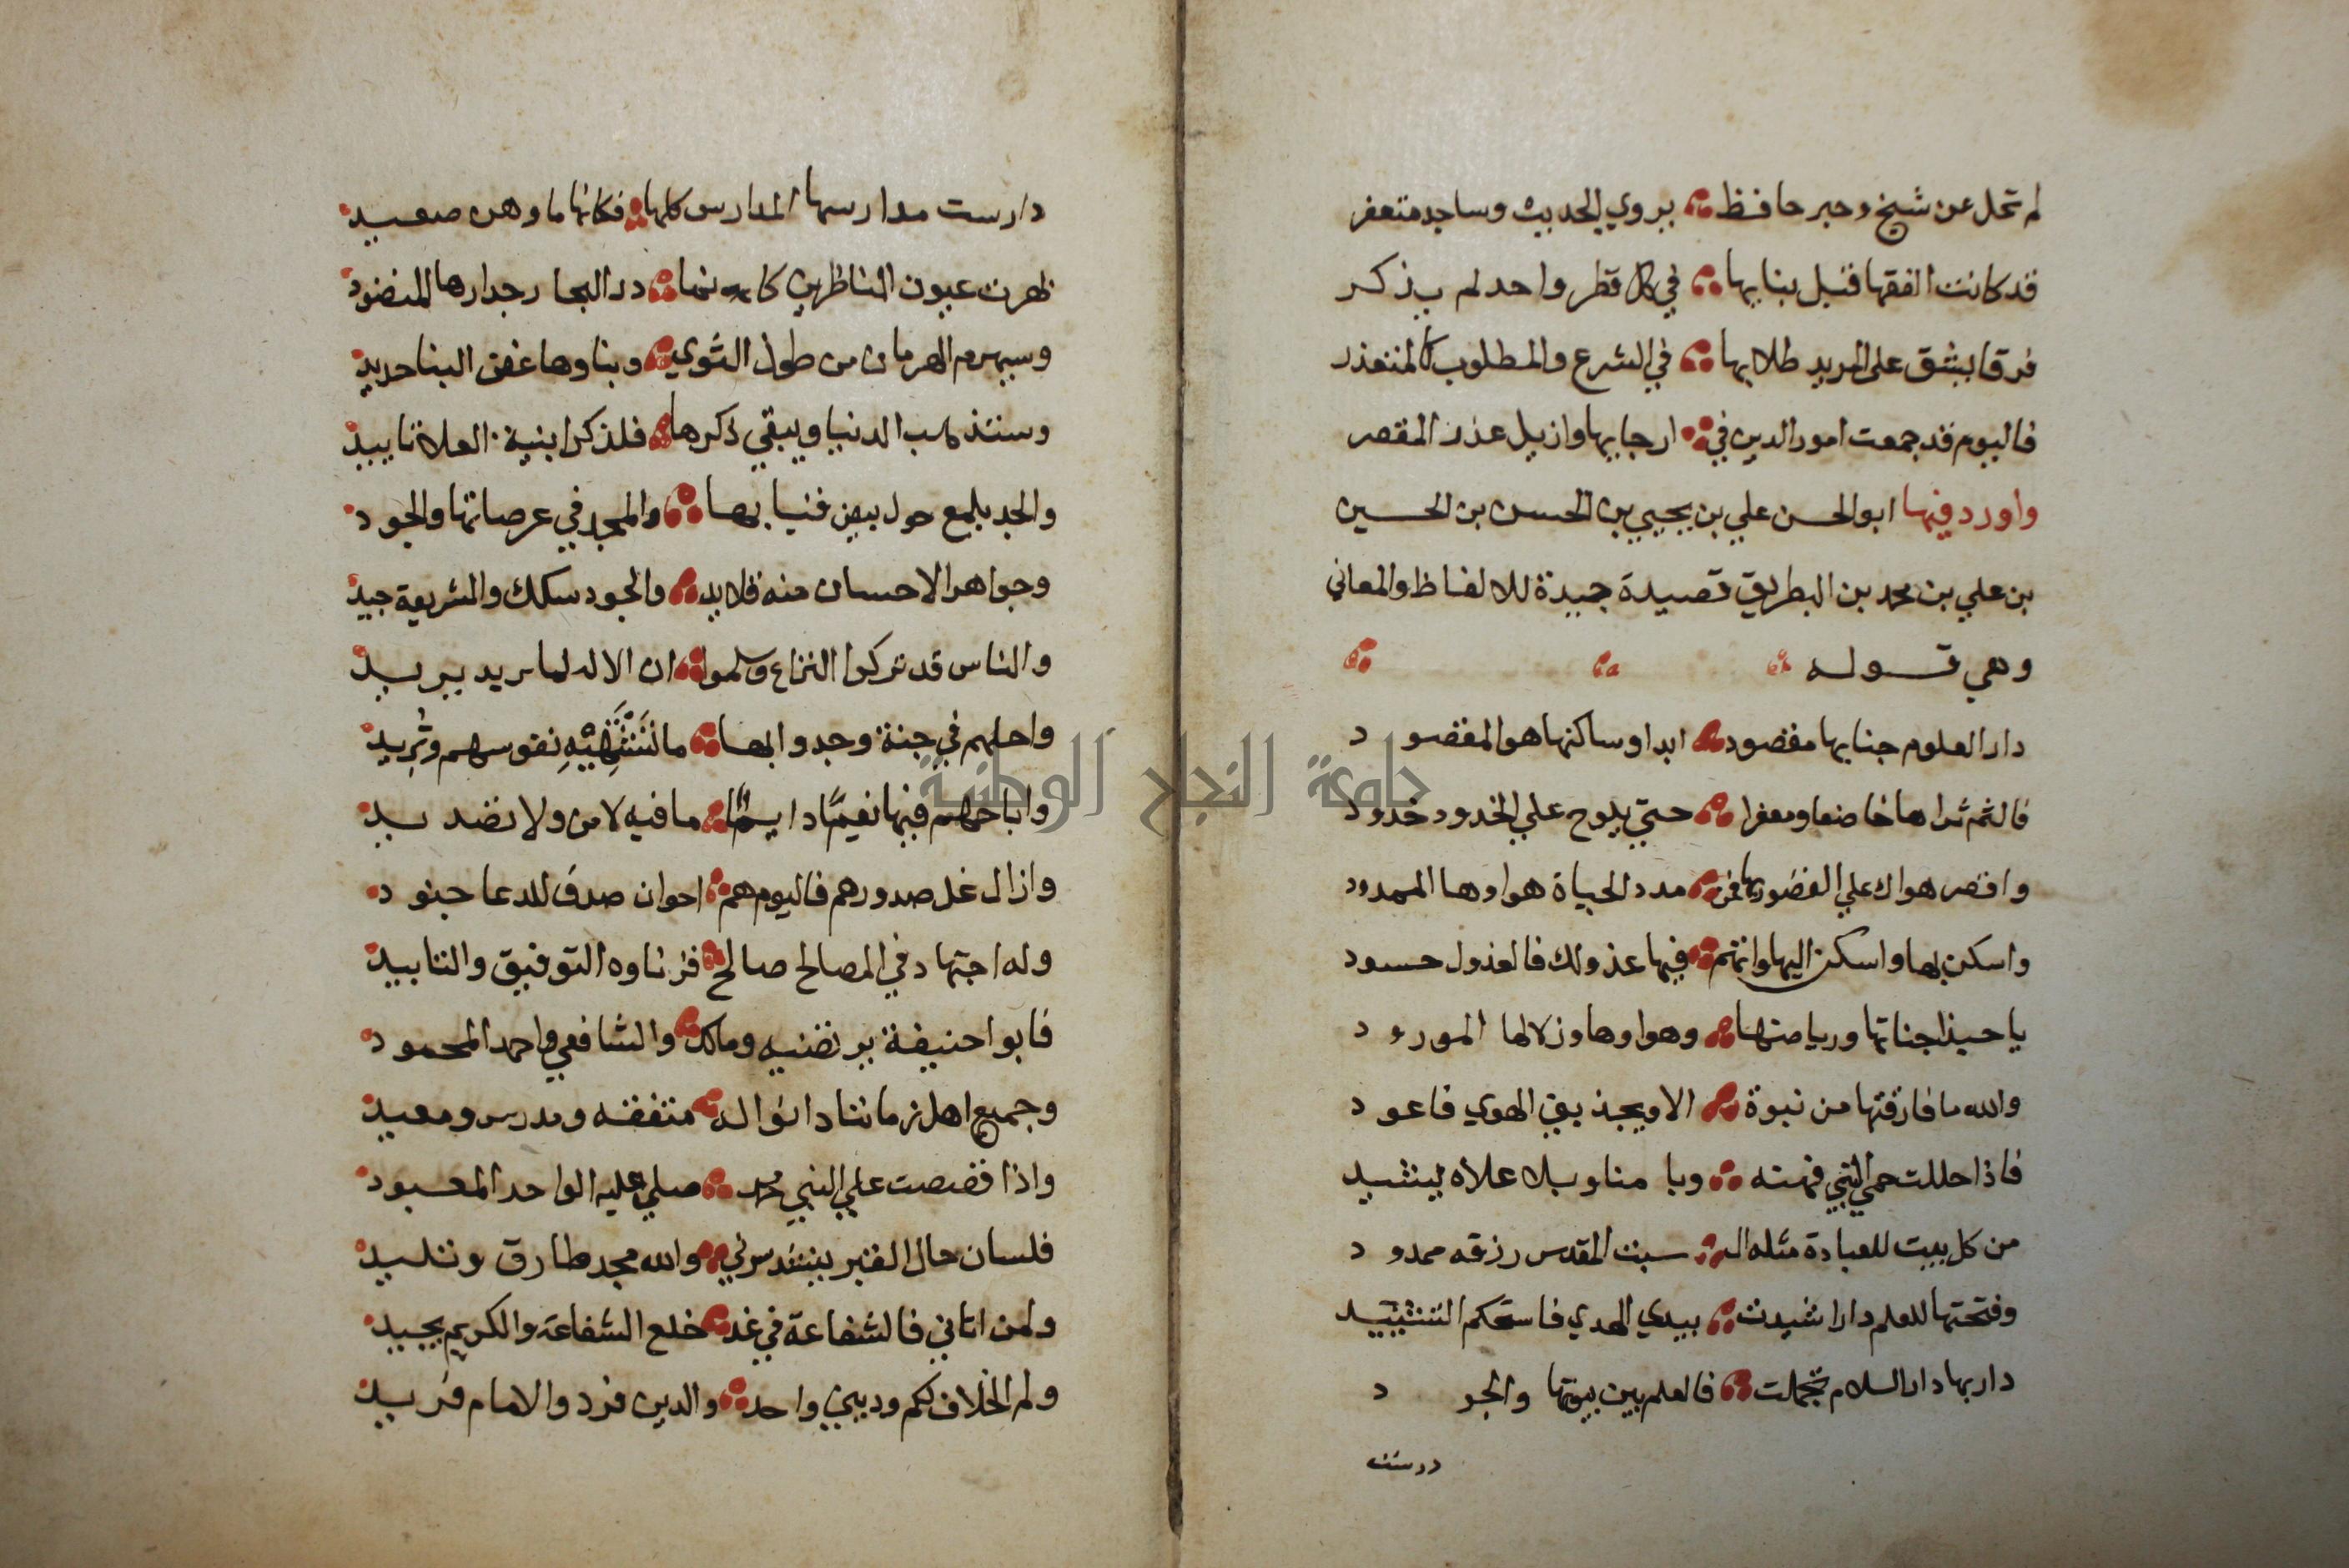 لم تخل عن شيخ وحبر حافظ يروي الحديث وساجد متعفر
قد كانت الفقها قبل بنايها في كل قطر واحد لم يذكر
فرقا يشق على المريد طلابها في الشرع والمطلوب كالمتعذر
فاليوم قد جمعت امور الدين في ارجايها وازيل عذر المقصر
واورد فيها ابو الحسن علي بن يحيي بن الحسن بن الحسين
بن علي بن محمد بن البطريق قصيدة جيدة للالفاظ والمعاني
وهي قوله
دار العلوم جنابها مقصود ابدا وساكنها هو المقصود
فالثم ثراها خاضعا ومعفرا حتي يلوح علي الخدود خدود
واقصر هواك علي القصور بها فمن مدد الحياة هواوها الممدود
واسكن بها واسكن اليها واتهم فيها عذولك فالعذول حسود
يا حبذا جناتها ورياضها وهواوها وزلالها المورود
والله ما فارقتها من نبوة الا ويجذبني الهوي فاعود
فاذا حللت حمي النبي فهمته وبا منا وبلا علاه يشيد
من كل بيت للعبادة مثله البيت المقدس رزقه ممدود
وفتحتها للعلم دارا شيدت بيدي الهدي فاستحكم التشييد
دار بها دار السلام تجملت فالعلم بين بيوتها والجود
درست
دارست مدارسها المدارس كلها فكانها ما وهن صعيد
ظهرت عيون الناظرين كانما درر البحار جدارها المنضود
وسيهرم الهرمان من طول الثوي وبناوها غض البنا حديد
وستذهب الدنيا ويبقي ذكرها فلذكر ابنية العلا تابيد
والجد يلمع حول بيض فنيابها والمجد في عرصاتها والجود
وجواهر الاحسان منه قلايد والجود سلك والشريعة جيد
والناس قد تركوا النزاع وسلموا ان الاله لما يريد يريد
واحلهم في جنة وجدوا بها ما تشتهيه نفوسهم وتريد
واباحهم فيها نعيما دايما ما فيه لا من ولا تصريد
وازال غل صدورهم فاليوم هم اخوان صدق للدعا جنود
وله اجتهاد في المصالح صالح قرناوه التوفيق والتاييد
فابو حنيفة يرتضيه ومالك والشافعي واحمد المحمود
وجميع اهل زماننا داع له متفقه ومدرس ومعيد
واذا قصصت علي النبي محمد صلي عليه الواحد المعبود
فلسان حال القبر ينشد سرني والله مجد طارق وتليد
ولمن اتاني فالشفاعة في غد خلع الشفاعة والكريم يجيد
ولم الخلاف لكم وديني واحد والدين فرد والامام فريد
جامعة النجاح الوطنية